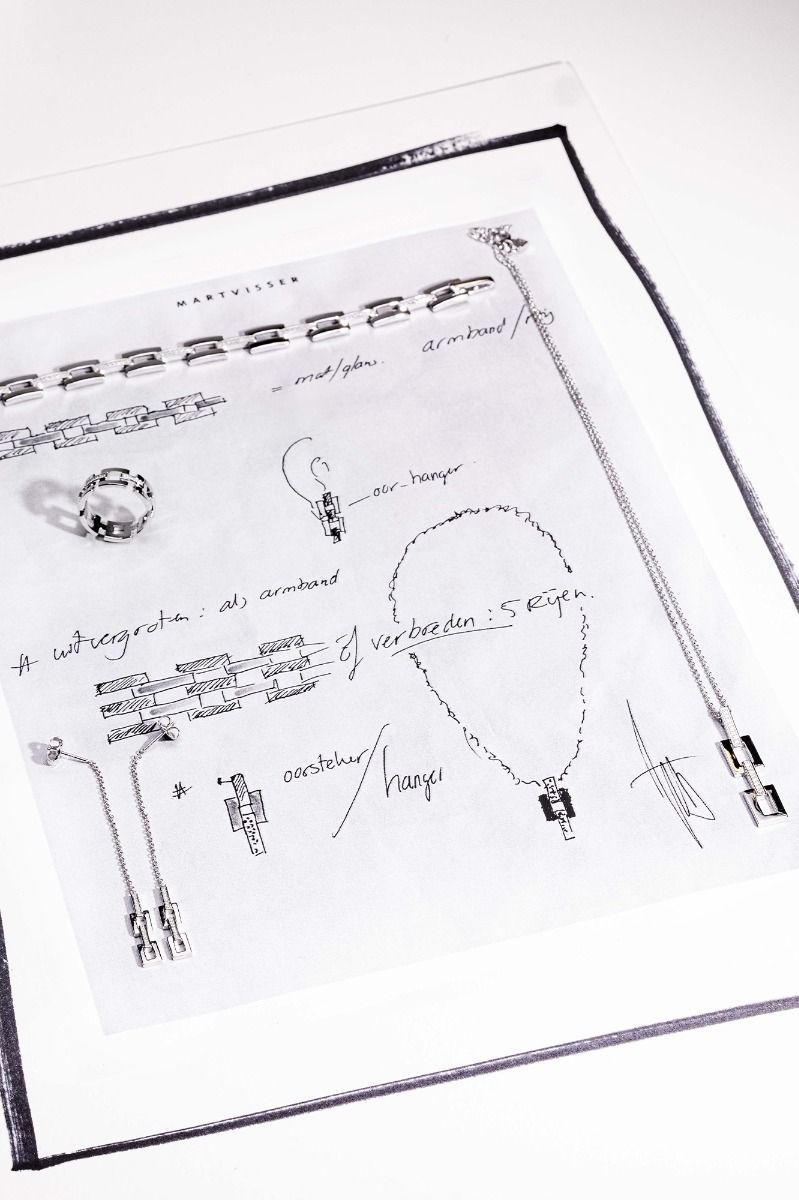 MARTVISSER
= mat/glans.
armband/ring
oor-hanger
# uitvergroten: als armband
of verbreden: 5 Rijen.
# oorsteker/hanger